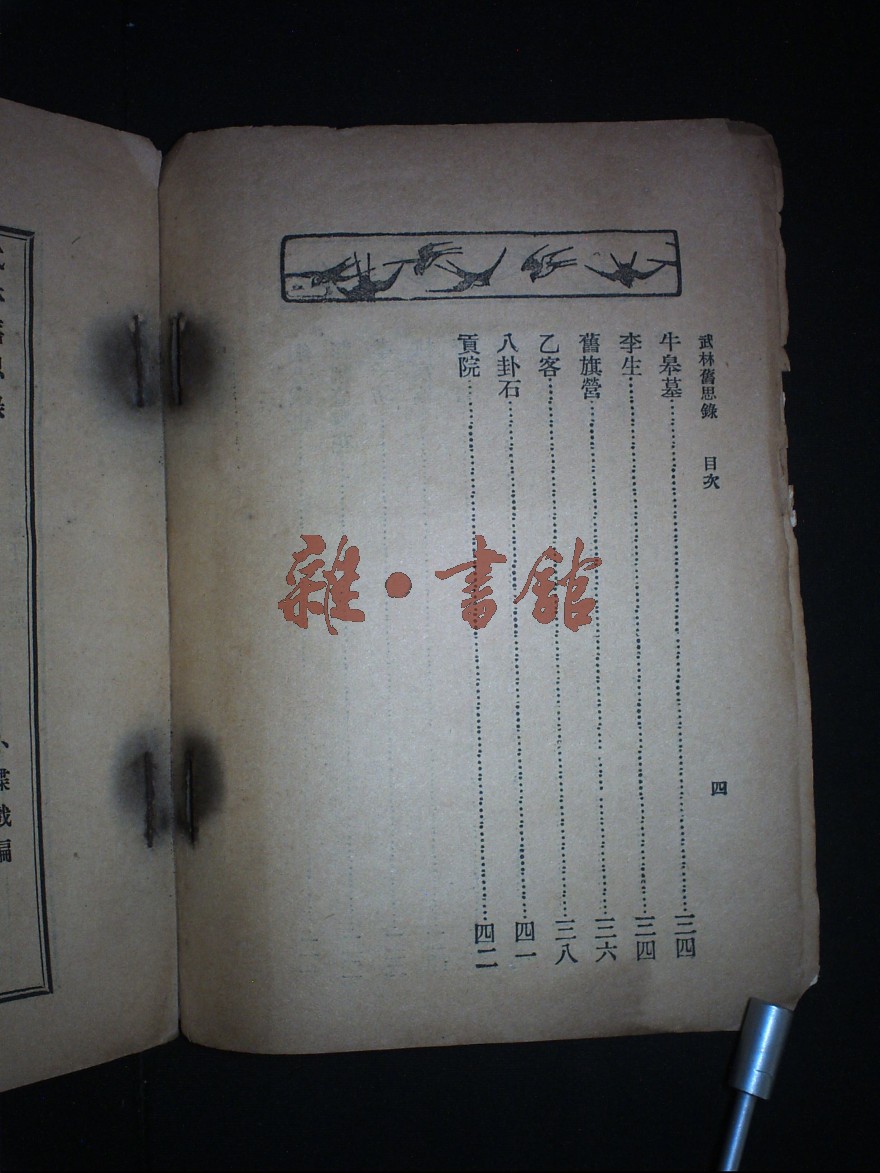 武林舊思錄　目次
四
牛皋墓……三四
李生……三四
舊旗營……三六
乙客……三八
八卦石……四一
貢院……四二
雜·書館